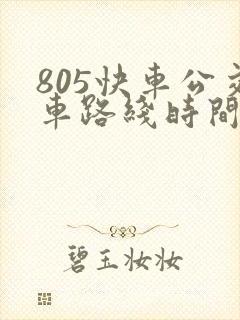 805快車公交
車路綫時間
碧玉妆妆